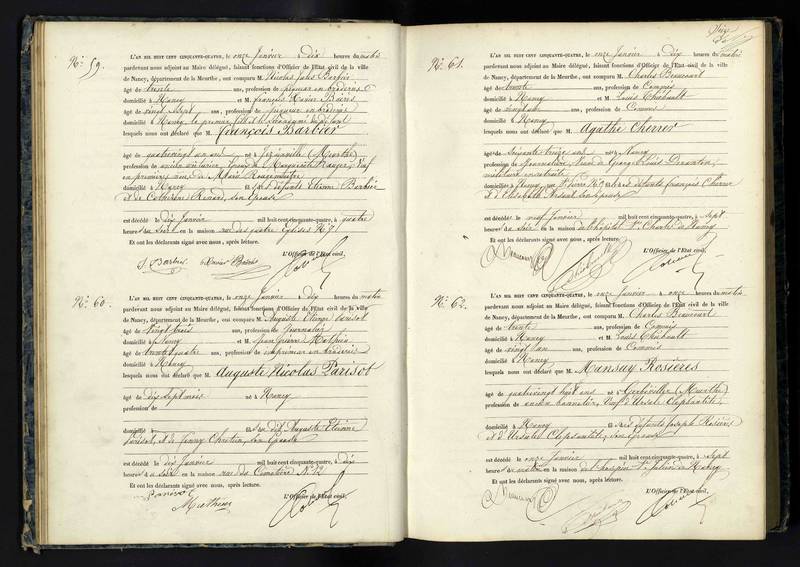 No. 59.
L'AN MIL HUIT CENT CINQUANTE-QUATRE, le onze Janvier à Dix heures du matin
pardevant nous adjoint au Maire délégué, faisant fonctions d'Officier de l'Etat civil de la ville
de Nancy, département de la Meurthe, ont comparu M. Nicolas Jules Barbier
âgé de trente ans, profession de piqueur en broderies
domicilié à Nancy et M. François Xavier
âgé de vingt sept ans, profession de piqueur en broderies
domicilié à Nancy, le premier fils et le second
lesquels nous ont déclaré que M. François Barbier
âgé de quatrevingt un ans né à (Meurthe)
profession de ancien Veuf
en premières de Marie
domicilié à Nancy Et fils de défunts Etienne Barbier
et de Catherine Renard, son épouse
est décédé le dix Janvier mil huit cent cinquante-quatre, à quatre
heures du soir en la maison rue des quatre Eglises No. 91
Et ont les déclarants signé avec nous, après lecture.
J. Barbier Xavier
L'Officier de l'Etat civil,
No. 60.
L'AN MIL HUIT CENT CINQUANTE-QUATRE, le onze Janvier à Dix heures du matin
pardevant nous adjoint au Maire délégué, faisant fonctions d'Officier de l'Etat civil de la ville
de Nancy, département de la Meurthe, ont comparu M. Auguste Etienne Parisot
âgé de vingt trois ans, profession de Journalier
domicilié à Nancy et M. Jean Pierre Mathieu
âgé de trente quatre ans, profession de imprimeur en broderies
domicilié à Nancy
lesquels nous ont déclaré que M. Auguste Nicolas Parisot
âgé de dix sept mois né à Nancy
profession de
domicilié à Et fils de dit Auguste Etienne
Parisot, et de Fanny Chretien, son épouse
est décédé le dix Janvier mil huit cent cinquante-quatre, à dix
heures du soir en la maison rue du Cimetière No. 12
Et ont les déclarants signé avec nous, après lecture.
Parisot
Mathieu
L'Officier de l'Etat civil,
No. 61.
L'AN MIL HUIT CENT CINQUANTE-QUATRE, le onze Janvier à Dix heures du matin
pardevant nous adjoint au Maire délégué, faisant fonctions d'Officier de l'Etat civil de la ville
de Nancy, département de la Meurthe, ont comparu M. Charles
âgé de trente ans, profession de Commis
domicilié à Nancy et M. Louis Thiébault
âgé de vingt un ans, profession de Commis
domicilié à Nancy
lesquels nous ont déclaré que M. Agathe Cherrer
âgé de Soixante treize ans née à Nancy
profession de Journalière, Veuve de George Louis
militaire en retraite
domiciliée à Nancy, rue St. Pierre fille de défunts François Cherrer
et d'Elisabeth son épouse
est décédée le neuf Janvier mil huit cent cinquante-quatre, à sept
heures du soir en la maison de l'hôpital St. Charles de Nancy
Et ont les déclarants signé avec nous, après lecture.
L'Officier de l'Etat civil,
No. 62.
L'AN MIL HUIT CENT CINQUANTE-QUATRE, le onze Janvier à onze heures du matin
pardevant nous adjoint au Maire délégué, faisant fonctions d'Officier de l'Etat civil de la ville
de Nancy, département de la Meurthe, ont comparu M. Charles
âgé de trente ans, profession de Commis
domicilié à Nancy et M. Louis Thiébault
âgé de vingt un ans, profession de Commis
domicilié à Nancy
lesquels nous ont déclaré que M. Mansuy Rosières
âgé de quatrevingt huit ans né à Gerbéviller (Meurthe)
profession de ancien bonnetier, Veuf d'Ursule
domicilié à Nancy Et fils de défunts Joseph Rosières
et d'Ursule son épouse
est décédé le onze Janvier mil huit cent cinquante-quatre, à sept
heures du matin en la maison de l'hospice St. Julien de Nancy
Et ont les déclarants signé avec nous, après lecture.
L'Officier de l'Etat civil,